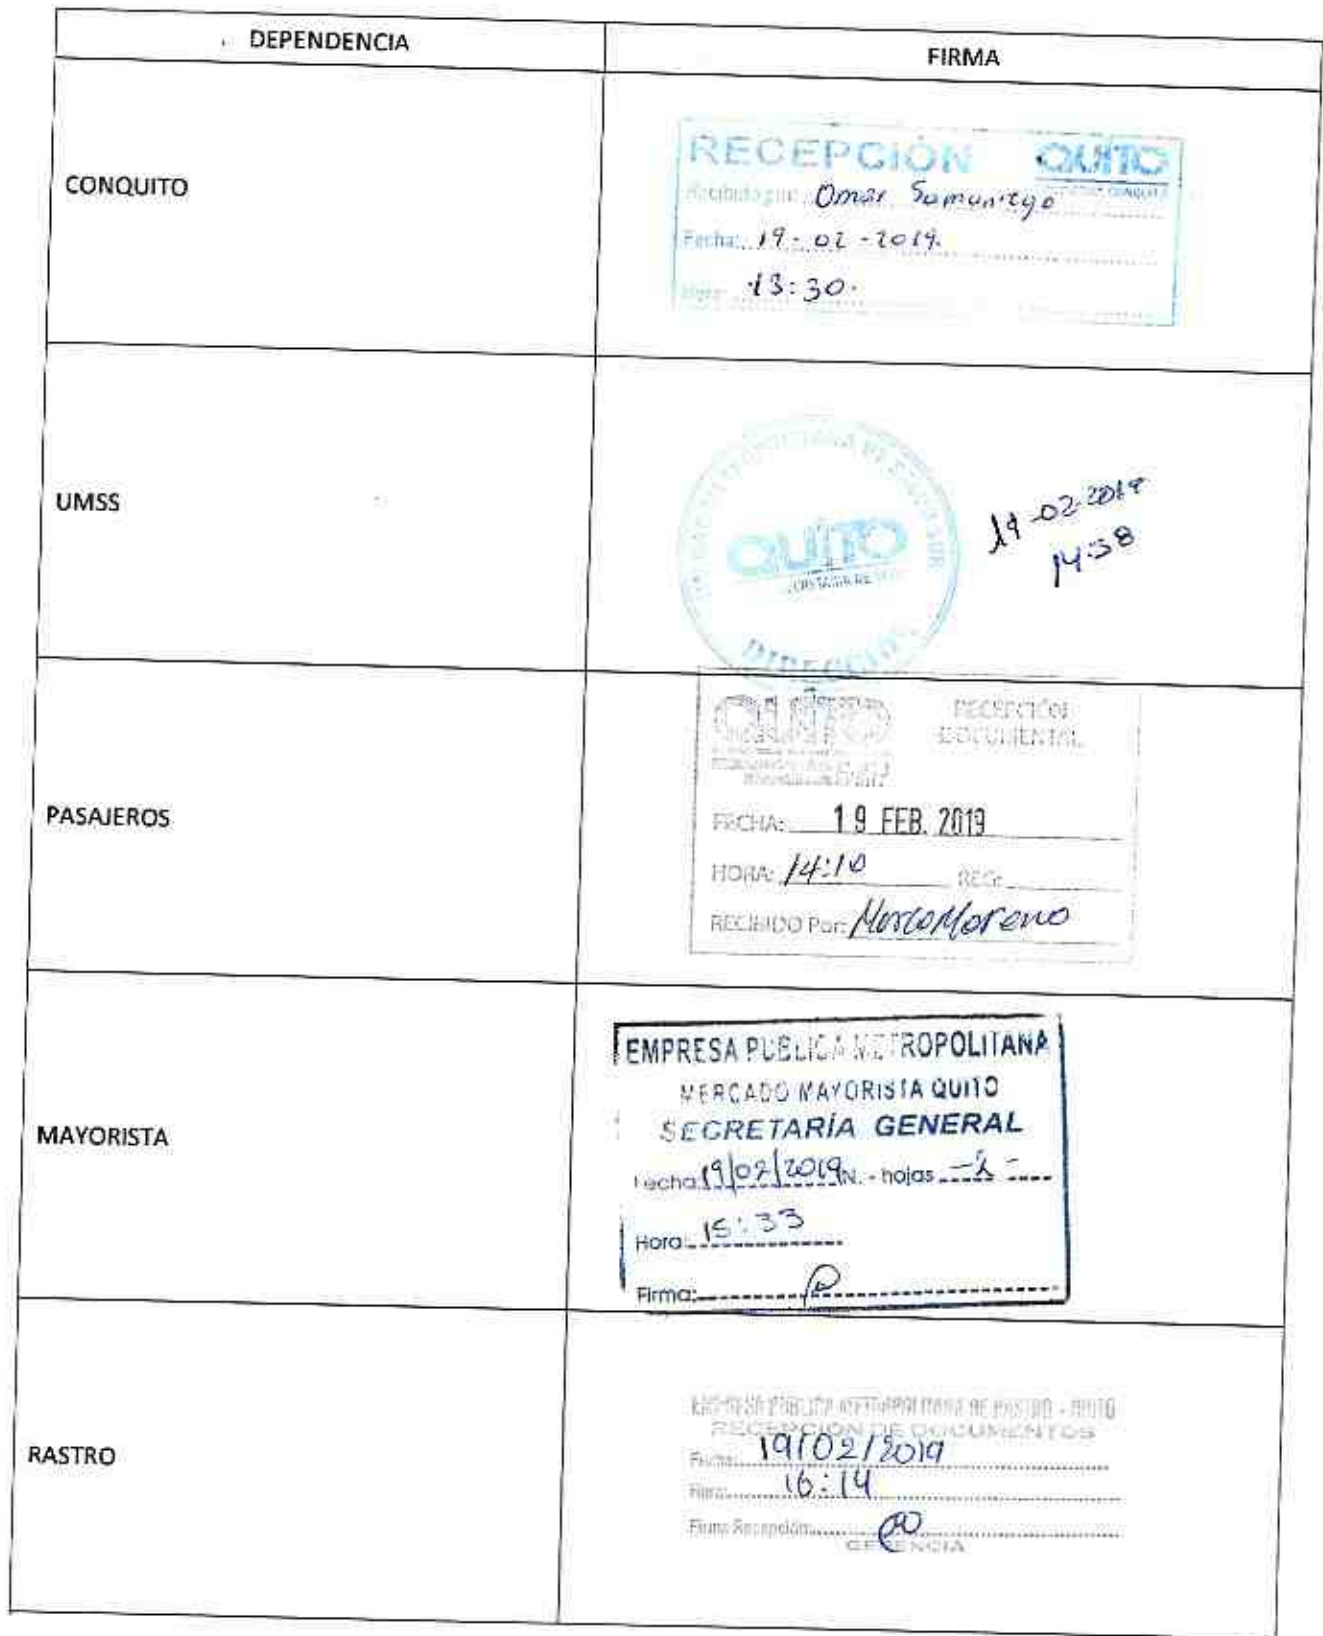 DEPENDENCIA
FIRMA
CONQUITO
RECEPCIÓN QUITO
Recibido por: Omar Samaniego
CONQUITO
Fecha: 19-02-2019
Hora: 13:30
UMSS
QUITO
DIRECCIÓN
19-02-2019
14:38
PASAJEROS
QUITO
RECEPCIÓN
DOCUMENTAL
FECHA: 19 FEB. 2019
HORA: 14:10 REG:
RECIBIDO Por: Marco Moreno
MAYORISTA
EMPRESA PUBLICA METROPOLITANA
MERCADO MAYORISTA QUITO
SECRETARÍA GENERAL
Fecha: 19/02/2019 N. - hojas
Hora: 15:33
Firma:
RASTRO
EMPRESA PÚBLICA METROPOLITANA DE RASTRO - QUITO
RECEPCIÓN DE DOCUMENTOS
Fecha: 19/02/2019
Hora: 16:14
Firma Recepción:
GERENCIA